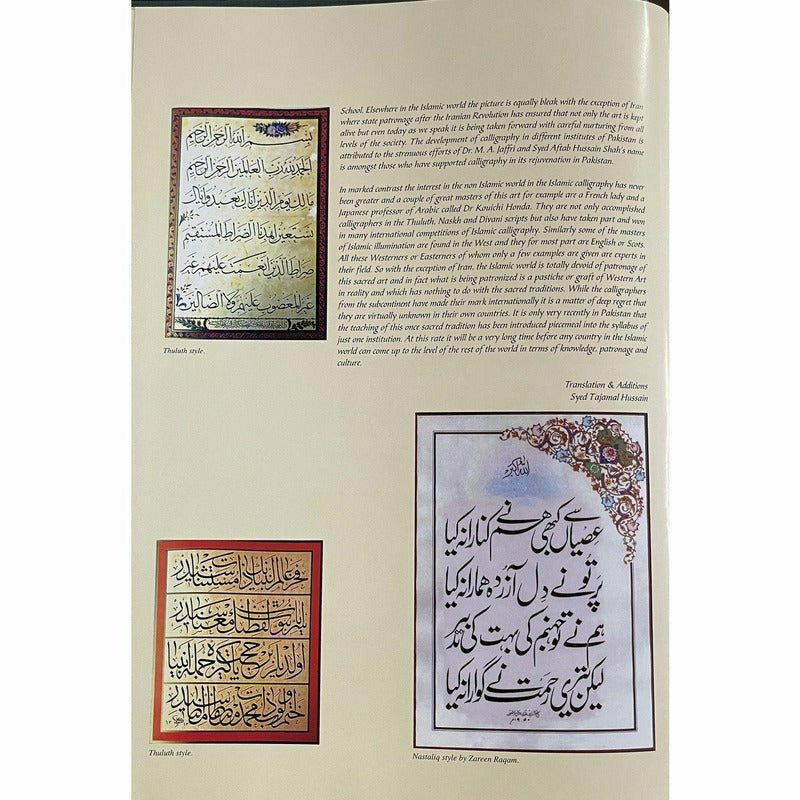 بسم الله الرحمن الرحيم
الحمد لله رب العالمين الرحمن الرحيم
مالك يوم الدين اياك نعبد واياك
نستعين اهدنا الصراط المستقيم
صراط الذين انعمت عليهم غير
المغضوب عليهم ولا الضالين
Thuluth style.
School. Elsewhere in the Islamic world the picture is equally bleak with the exception of Iran
where state patronage after the Iranian Revolution has ensured that not only the art is kept
alive but even today as we speak it is being taken forward with careful nurturing from all
levels of the society. The development of calligraphy in different institutes of Pakistan is
attributed to the strenuous efforts of Dr. M. A. Jaffri and Syed Aftab Hussain Shah's name
is amongst those who have supported calligraphy in its rejuvenation in Pakistan.
In marked contrast the interest in the non Islamic world in the Islamic calligraphy has never
been greater and a couple of great masters of this art for example are a French lady and a
Japanese professor of Arabic called Dr Kouichi Honda. They are not only accomplished
calligraphers in the Thuluth, Naskh and Divani scripts but also have taken part and won
in many international competitions of Islamic calligraphy. Similarly some of the masters
of Islamic illumination are found in the West and they for most part are English or Scots.
All these Westerners or Easterners of whom only a few examples are given are experts in
their field. So with the exception of Iran, the Islamic world is totally devoid of patronage of
this sacred art and in fact what is being patronized is a pastiche or graft of Western Art
in reality and which has nothing to do with the sacred traditions. While the calligraphers
from the subcontinent have made their mark internationally it is a matter of deep regret that
they are virtually unknown in their own countries. It is only very recently in Pakistan that
the teaching of this once sacred tradition has been introduced piecemeal into the syllabus of
just one institution. At this rate it will be a very long time before any country in the Islamic
world can come up to the level of the rest of the world in terms of knowledge, patronage and
culture.
Translation & Additions
Syed Tajamal Hussain
الله اکبر
عصیاں سے کبھی ہم نے کنارا نہ کیا
پر تو نے دل آزردہ ہمارا نہ کیا
ہم نے تو جہنم کی بہت کی تدبیر
لیکن تری رحمت نے گوارا نہ کیا
Nastaliq style by Zareen Raqam.
Thuluth style.